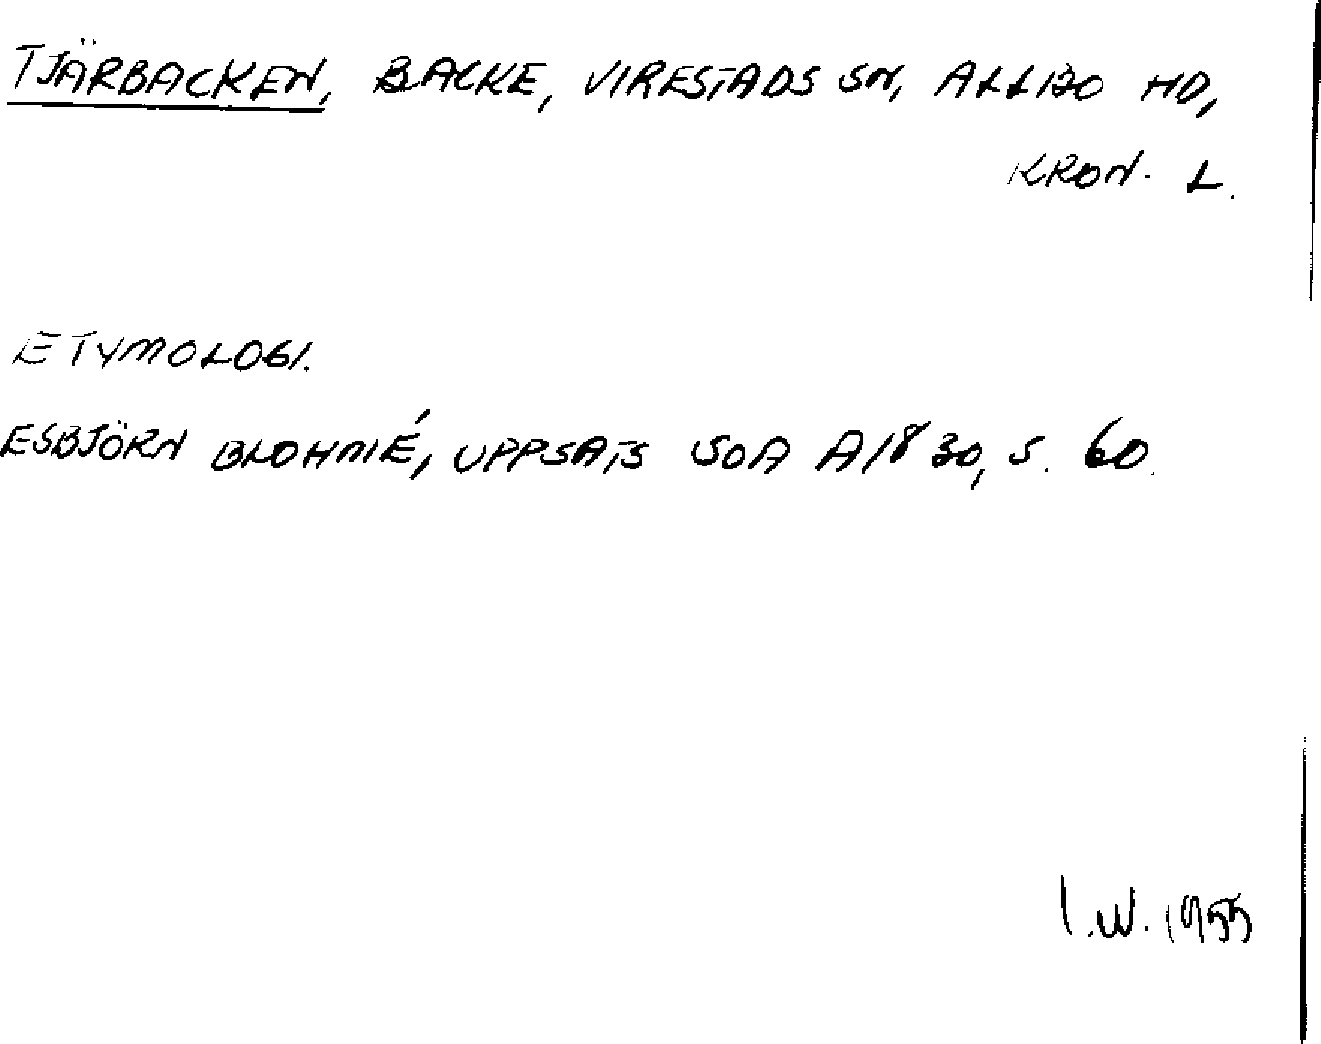 TJÄRBACKEN, BACKE, VIRESTADS SN, ALLBO HD,
KRON. L.
ETYMOLOGI.
ESBJÖRN BLOHMÉ, UPPSATS SOA A1830, S. 60.
I.W. 1955